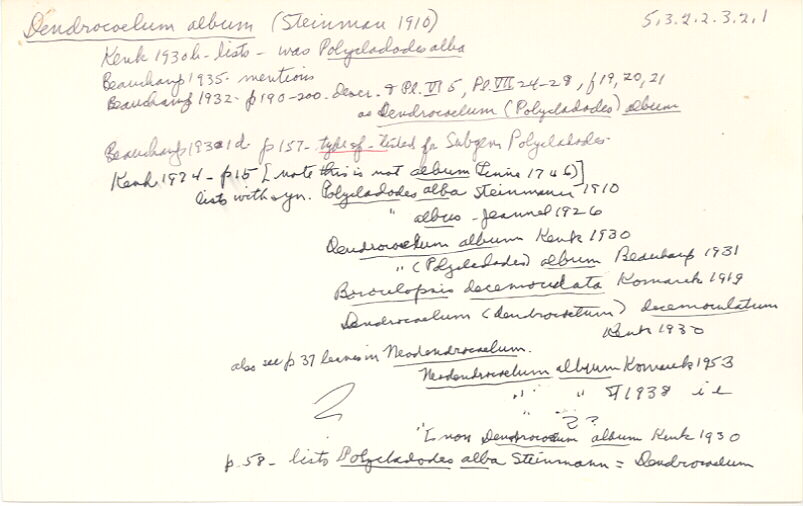 Dendrocoelum album (Steinman 1910) 5,3.2.2.3.2,1
Kenk 1930b - lists - was Polycladodes alba
Beauchamp 1935 - mentions
Beauchamp 1932 - p190-200. descr. & Pl. VI 5, Pl. VII 24-28, f 19, 20, 21
as Dendrocoelum (Polycladodes) album
Beauchamp 1931d p157 - type of - listed for Subgen Polycladodes
Kenk 1974 - p15 [note this is not album (Linne 1746)]
lists with syn. Polycladodes alba Steinmann 1910
" albus - Jeannel 1926
Dendrocoelum album Kenk 1930
" (Polycladodes) album Beauchamp 1931
decemoculata Komarek 1919
Dendrocoelum (dendrocoelum) decemoculatum
Kenk 1930
also see p 37 leaves in Neodendrocoelum.
Neodendrocoelum album Komarek 1953
" " 1938 i e
" ? ?
" non Dendrocoelum album Kenk 1930
p. 58 - lists Polycladodes alba Steinmann = Dendrocoelum